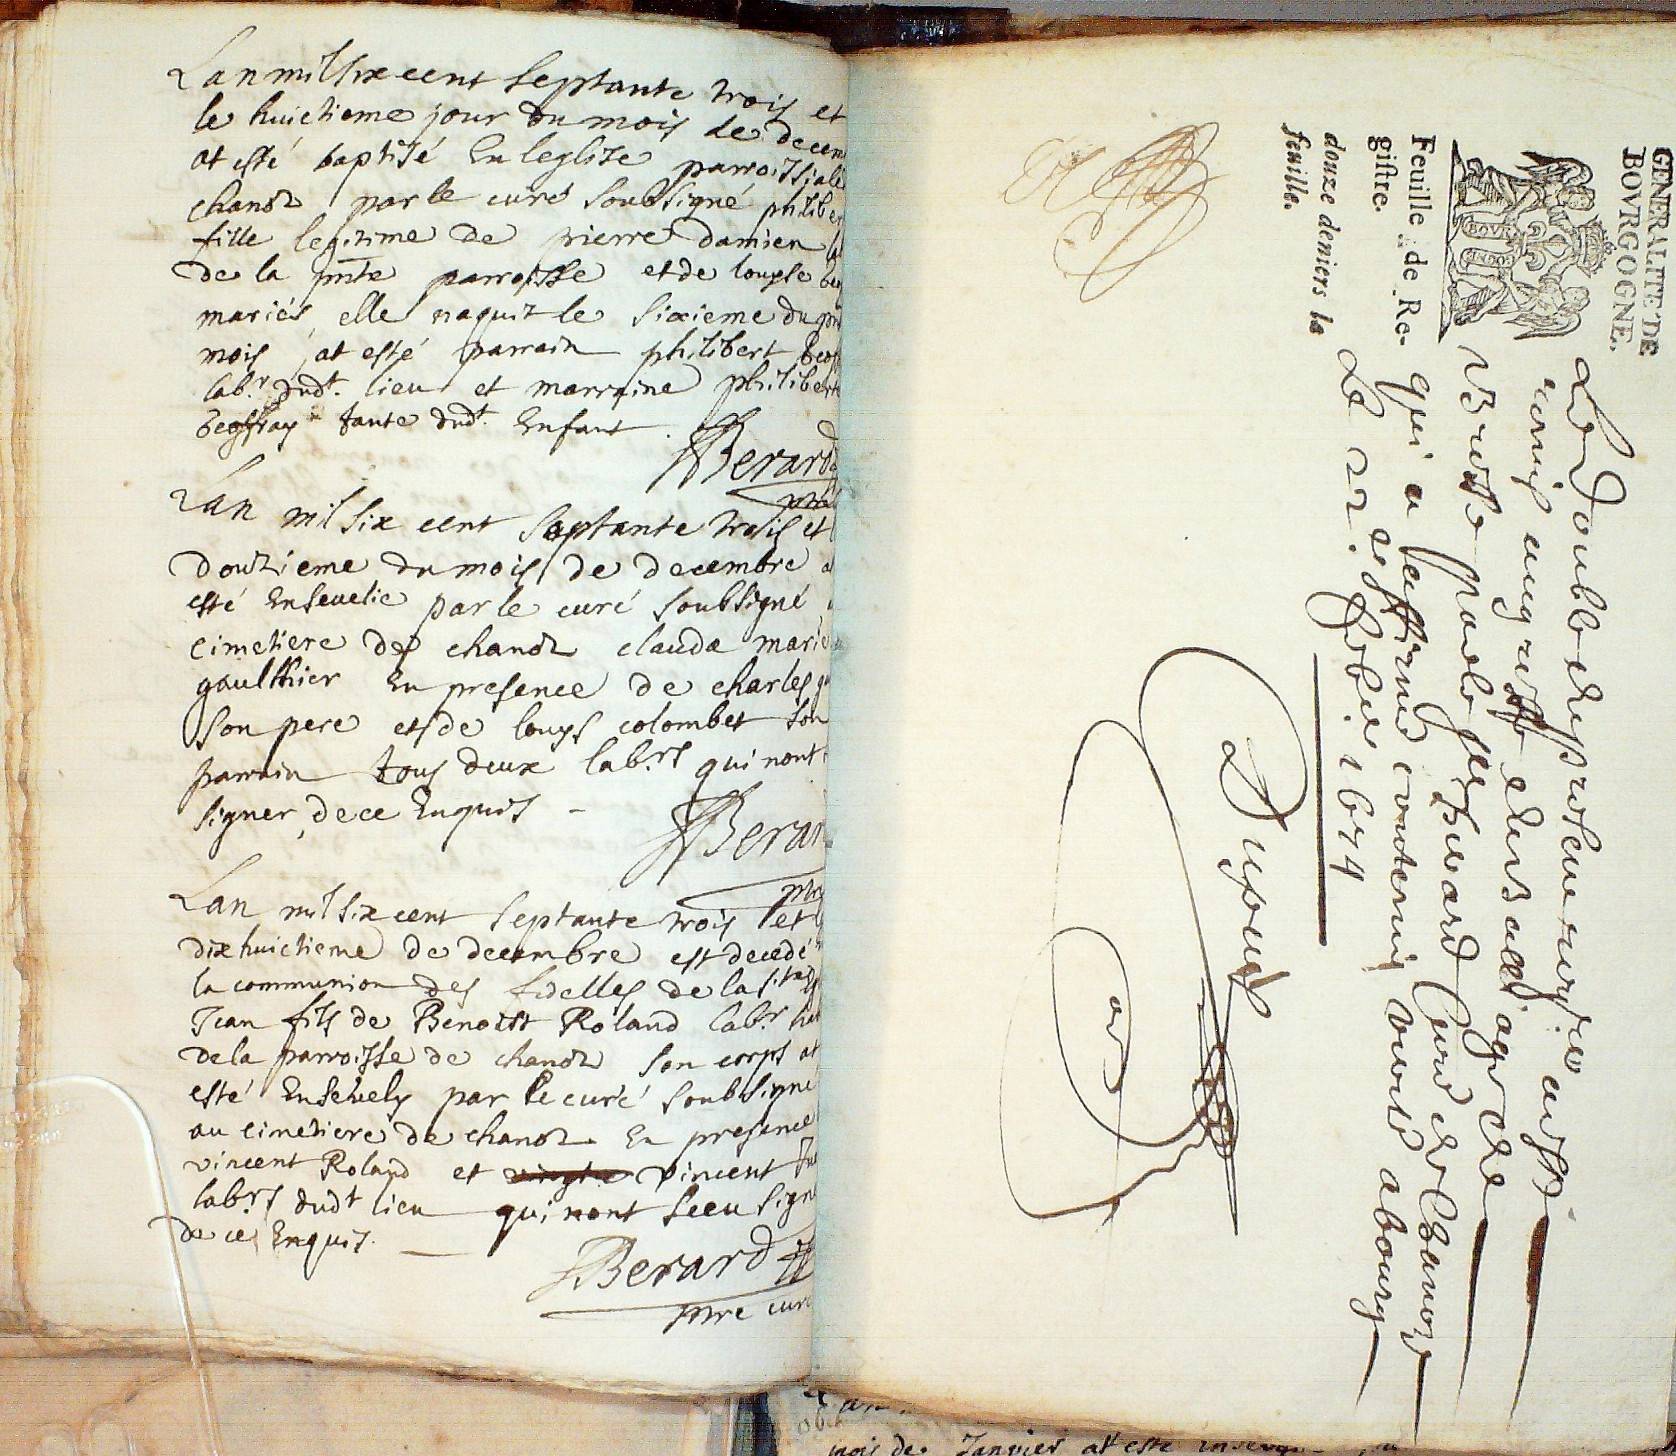 Lan mil six cent septante trois et
le huictieme jour du mois de decem
at esté baptisé En leglise parroissiale
chanoz par le curé soubsigné philiber
fille legitime de pierre damien
de la pnte parroisse et de louyse
mariés elle naquit le sixieme du
mois at esté parrain philibert
labr. dudt. lieu et marraine philibert
beoffray tante dudt. Enfant
Berard
ptre
Lan mil six cent septante trois et
douzieme du mois de decembre a
esté Ensevelie par le curé soubsigné
cimetiere de chanoz clauda marie
gaulthier En presence de charles
son pere et de louys colombet son
parrain tous deux labrs qui nont
signer de ce Enquis
Berar
ptre
Lan mil six cent septante trois et
dix huictieme de decembre est decedé
la communion des fidelles de la
Jean fils de Benoist Roland labr
de la parroisse de chanoz son corps at
esté Ensevely par le curé soubsigné
au cimetiere de chanoz En presence
vincent Roland et vincent
labrs dudt lieu qui nont sceu sign
de ce Enquis.
Berard
ptre curé
GENERALITE DE
BOVRGOGNE.
BOVR
GOGNE
Feuille de Re-
gistre.
douze deniers la
feuille.
Le double du
remis au greffe du
Bresse par Berard Curé de Chanoz
qui a affirmé contenir verité a bourg
ce 22. 1674
Dufour
mois de Janvier at este